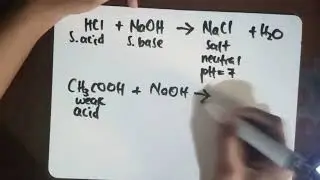 HCl + NaOH → NaCl + H₂O
S. acid S. base salt
neutral
pH = 7
CH₃COOH + NaOH →
weak
acid